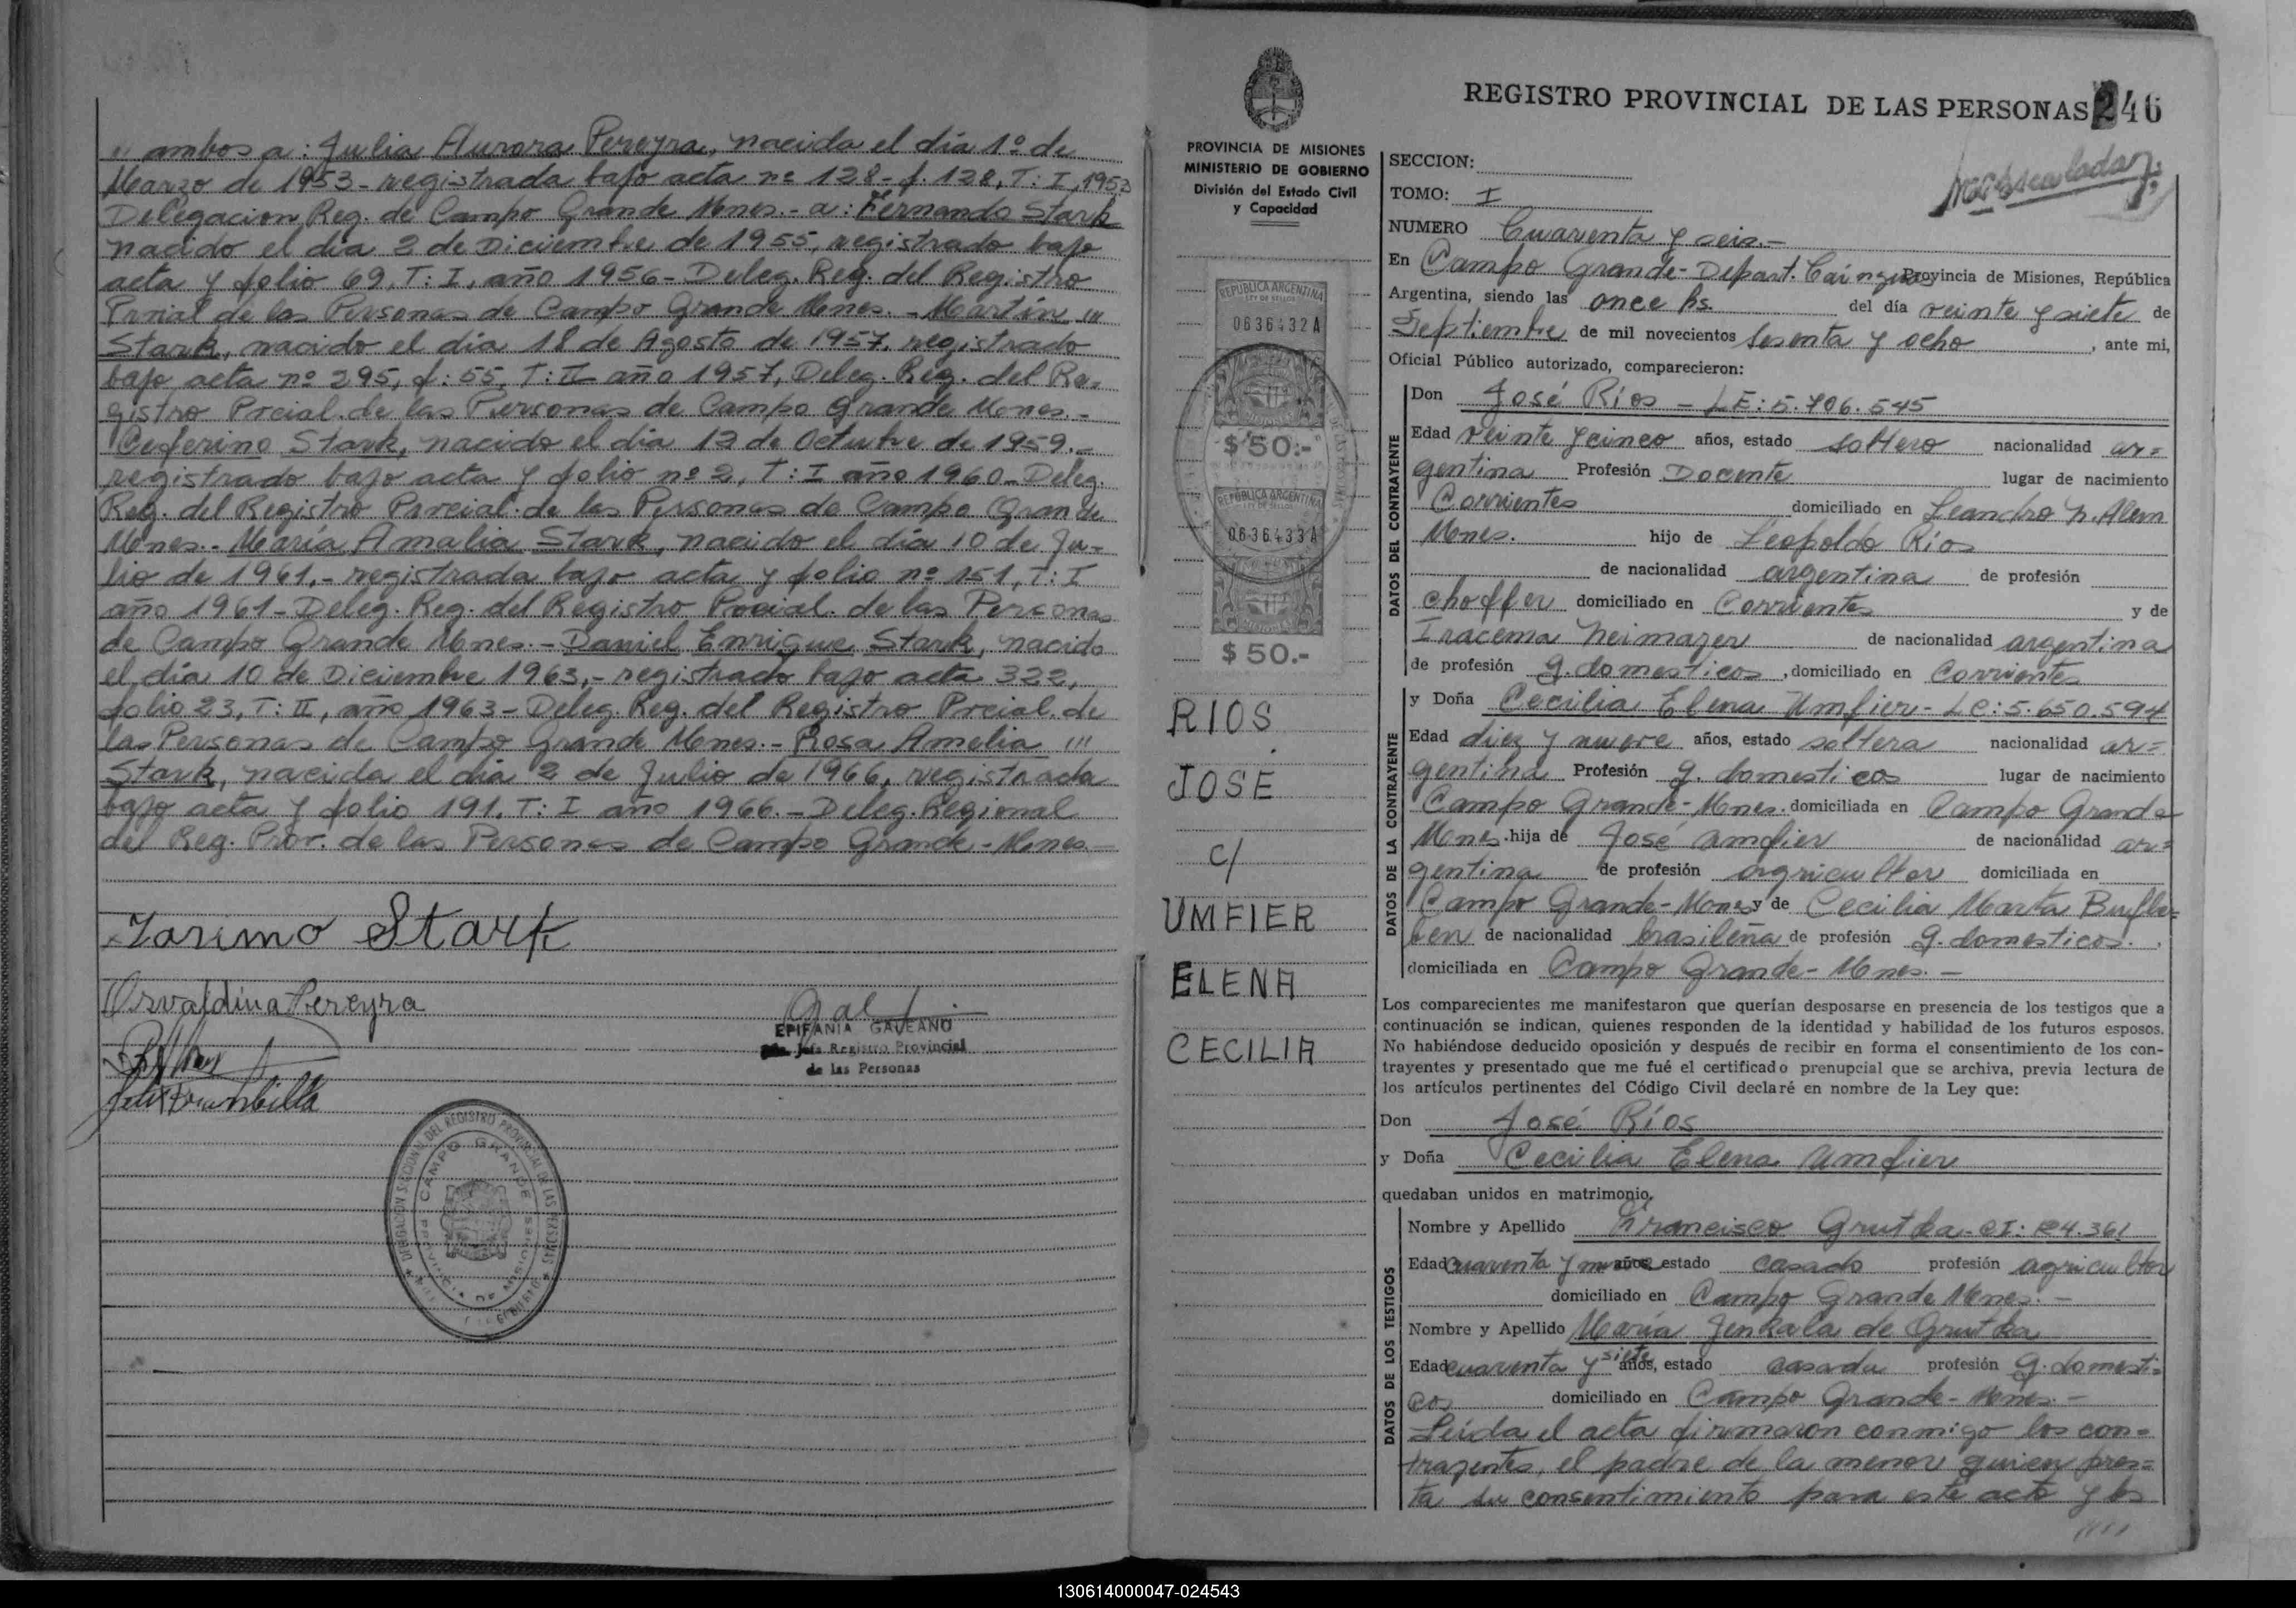 " ambos a: Julia Aurora Pereyra, nacida el día 1º de
Marzo de 1953 - registrada bajo acta nº 128 - f. 128, T: I, 1953
Delegacion Reg. de Campo Grande Mnes. - a: Fernando Stark
nacido el día 2 de Diciembre de 1955, registrado bajo
acta y folio 69, T: I, año 1956 - Deleg. Reg. del Registro
Prcial de las Personas de Campo Grande Mnes. - Martín "'
Stark, nacido el día 18 de Agosto de 1957, registrado
bajo acta nº 295, f: 55, T: II año 1957, Deleg. Reg. del Re-
gistro Prcial. de las Personas de Campo Grande Mnes. -
Ceferino Stark, nacido el día 12 de Octubre de 1959. -
registrado bajo acta y folio nº 2, T: I año 1960 - Deleg.
Reg. del Registro Prcial. de las Personas de Campo Grande
Mnes. - María Amalia Stark, nacido el día 10 de Ju-
lio de 1961. - registrada bajo acta y folio nº 151, T: I
año 1961 - Deleg. Reg. del Registro Prcial. de las Personas
de Campo Grande Mnes. - Daniel Enrique Stark, nacido
el día 10 de Diciembre 1963, - registrado bajo acta 322,
folio 23, T: II, año 1963 - Deleg. Reg. del Registro Prcial. de
las Personas de Campo Grande Mnes. - Rosa Amelia "'
Stark, nacida el día 2 de Julio de 1966, registrada
bajo acta y folio 191, T: I año 1966. - Deleg. Regional
del Reg. Prov. de las Personas de Campo Grande - Mnes. -
Stark
Osvaldina Pereyra
EPIFANIA GALEANO
Jefa Registro Provincial
de las Personas
DELEGACION SECCIONAL DEL REGISTRO PROVINCIAL DE LAS PERSONAS
CAMPO GRANDE
PROVINCIA DE MISIONES
REGISTRO PROVINCIAL DE LAS PERSONAS 246
PROVINCIA DE MISIONES
MINISTERIO DE GOBIERNO
División del Estado Civil
y Capacidad
REPUBLICA ARGENTINA
LEY DE SELLOS
0636432A
MISIONES
$ 50.-
REPUBLICA ARGENTINA
LEY DE SELLOS
0636433A
MISIONES
$ 50.-
RIOS
JOSE
c/
UMFIER
ELENA
CECILIA
SECCION:
TOMO: I
NUMERO Cuarenta y seis. -
En Campo Grande - Depart. Cainguás Provincia de Misiones, República
Argentina, siendo las once hs. del día veinte y siete de
Septiembre de mil novecientos sesenta y ocho, ante mi,
Oficial Público autorizado, comparecieron:
DATOS DEL CONTRAYENTE
Don José Ríos - LE: 5.706.545
Edad veinte y cinco años, estado soltero nacionalidad ar=
gentina Profesión Docente lugar de nacimiento
Corrientes domiciliado en Leandro N. Alem
Mnes. hijo de Leopoldo Ríos
de nacionalidad argentina de profesión
choffer domiciliado en Corrientes y de
Iracema Neimayer de nacionalidad argentina
de profesión q. domesticos, domiciliado en Corrientes
DATOS DE LA CONTRAYENTE
y Doña Cecilia Elena Umfier - LC: 5.650.594
Edad diez y nueve años, estado soltera nacionalidad ar=
gentina Profesión q. domesticos lugar de nacimiento
Campo Grande - Mnes. domiciliada en Campo Grande
Mnes. hija de José Umfier de nacionalidad ar=
gentina de profesión agricultor domiciliada en
Campo Grande - Mnes y de Cecilia Marta
de nacionalidad brasileña de profesión q. domesticos.
domiciliada en Campo Grande - Mnes. -
Los comparecientes me manifestaron que querían desposarse en presencia de los testigos que a
continuación se indican, quienes responden de la identidad y habilidad de los futuros esposos.
No habiéndose deducido oposición y después de recibir en forma el consentimiento de los con-
trayentes y presentado que me fué el certificado prenupcial que se archiva, previa lectura de
los artículos pertinentes del Código Civil declaré en nombre de la Ley que:
Don José Ríos
y Doña Cecilia Elena Umfier
quedaban unidos en matrimonio.
DATOS DE LOS TESTIGOS
Nombre y Apellido Francisco Grutka - CI: 124.361
Edad cuarenta y nueve años, estado casado profesión agricultor
domiciliado en Campo Grande Mnes. -
Nombre y Apellido María Jenkala de Grutka
Edad cuarenta y siete años, estado casada profesión q. domesti=
cos domiciliado en Campo Grande - Mnes. -
Leída el acta firmaron conmigo los con=
trayentes, el padre de la menor quien pres=
ta su consentimiento para este acto y los
""
130614000047-024543